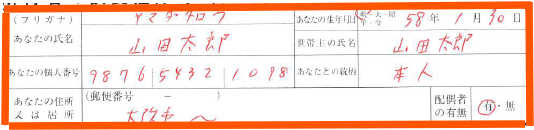 (フリガナ) ヤマダ タロウ あなたの生年月日 明・大・昭 平・令 58年 1月 30日
あなたの氏名 山田太郎 世帯主の氏名 山田太郎
あなたの個人番号 9876 5432 1098 あなたとの続柄 本人
あなたの住所又は居所 (郵便番号 - ) 大阪市〜 配偶者の有無 有・無